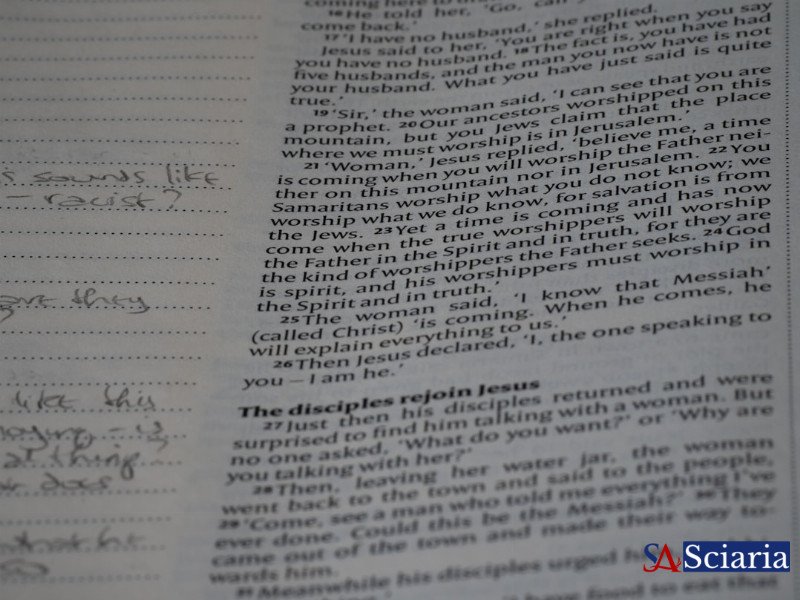 s sounds like
– racist?
they
like this
does
coming here to
16 He told her, 'Go,
come back.'
17 'I have no husband,' she replied.
Jesus said to her, 'You are right when you say
you have no husband. 18 The fact is, you have had
five husbands, and the man you now have is not
your husband. What you have just said is quite
true.'
19 'Sir,' the woman said, 'I can see that you are
a prophet. 20 Our ancestors worshipped on this
mountain, but you Jews claim that the place
where we must worship is in Jerusalem.'
21 'Woman,' Jesus replied, 'believe me, a time
is coming when you will worship the Father nei-
ther on this mountain nor in Jerusalem. 22 You
Samaritans worship what you do not know; we
worship what we do know, for salvation is from
the Jews. 23 Yet a time is coming and has now
come when the true worshippers will worship
the Father in the Spirit and in truth, for they are
the kind of worshippers the Father seeks. 24 God
is spirit, and his worshippers must worship in
the Spirit and in truth.'
25 The woman said, 'I know that Messiah'
(called Christ) 'is coming. When he comes, he
will explain everything to us.'
26 Then Jesus declared, 'I, the one speaking to
you – I am he.'
The disciples rejoin Jesus
27 Just then his disciples returned and were
surprised to find him talking with a woman. But
no one asked, 'What do you want?' or 'Why are
you talking with her?'
28 Then, leaving her water jar, the woman
went back to the town and said to the people,
29 'Come, see a man who told me everything I've
ever done. Could this be the Messiah?' 30 They
came out of the town and made their way to-
wards him.
31 Meanwhile his disciples urged
have food to eat that
SA Sciaria